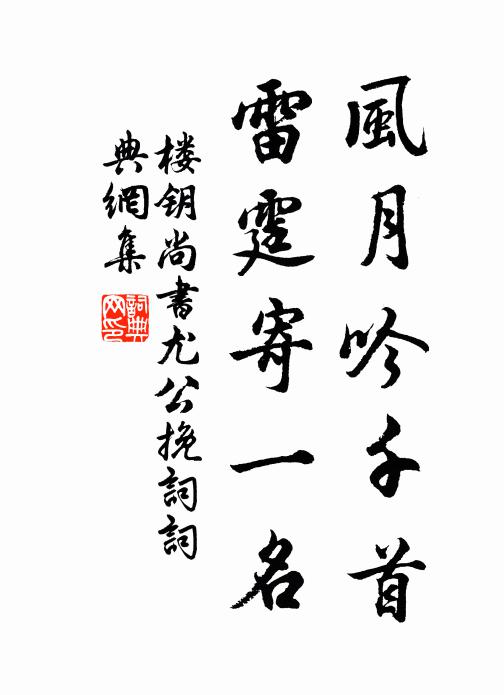 風月吟千首
雷霆寄一名
楼钥尚書尤公挽詞詞
典網集
詞典網印